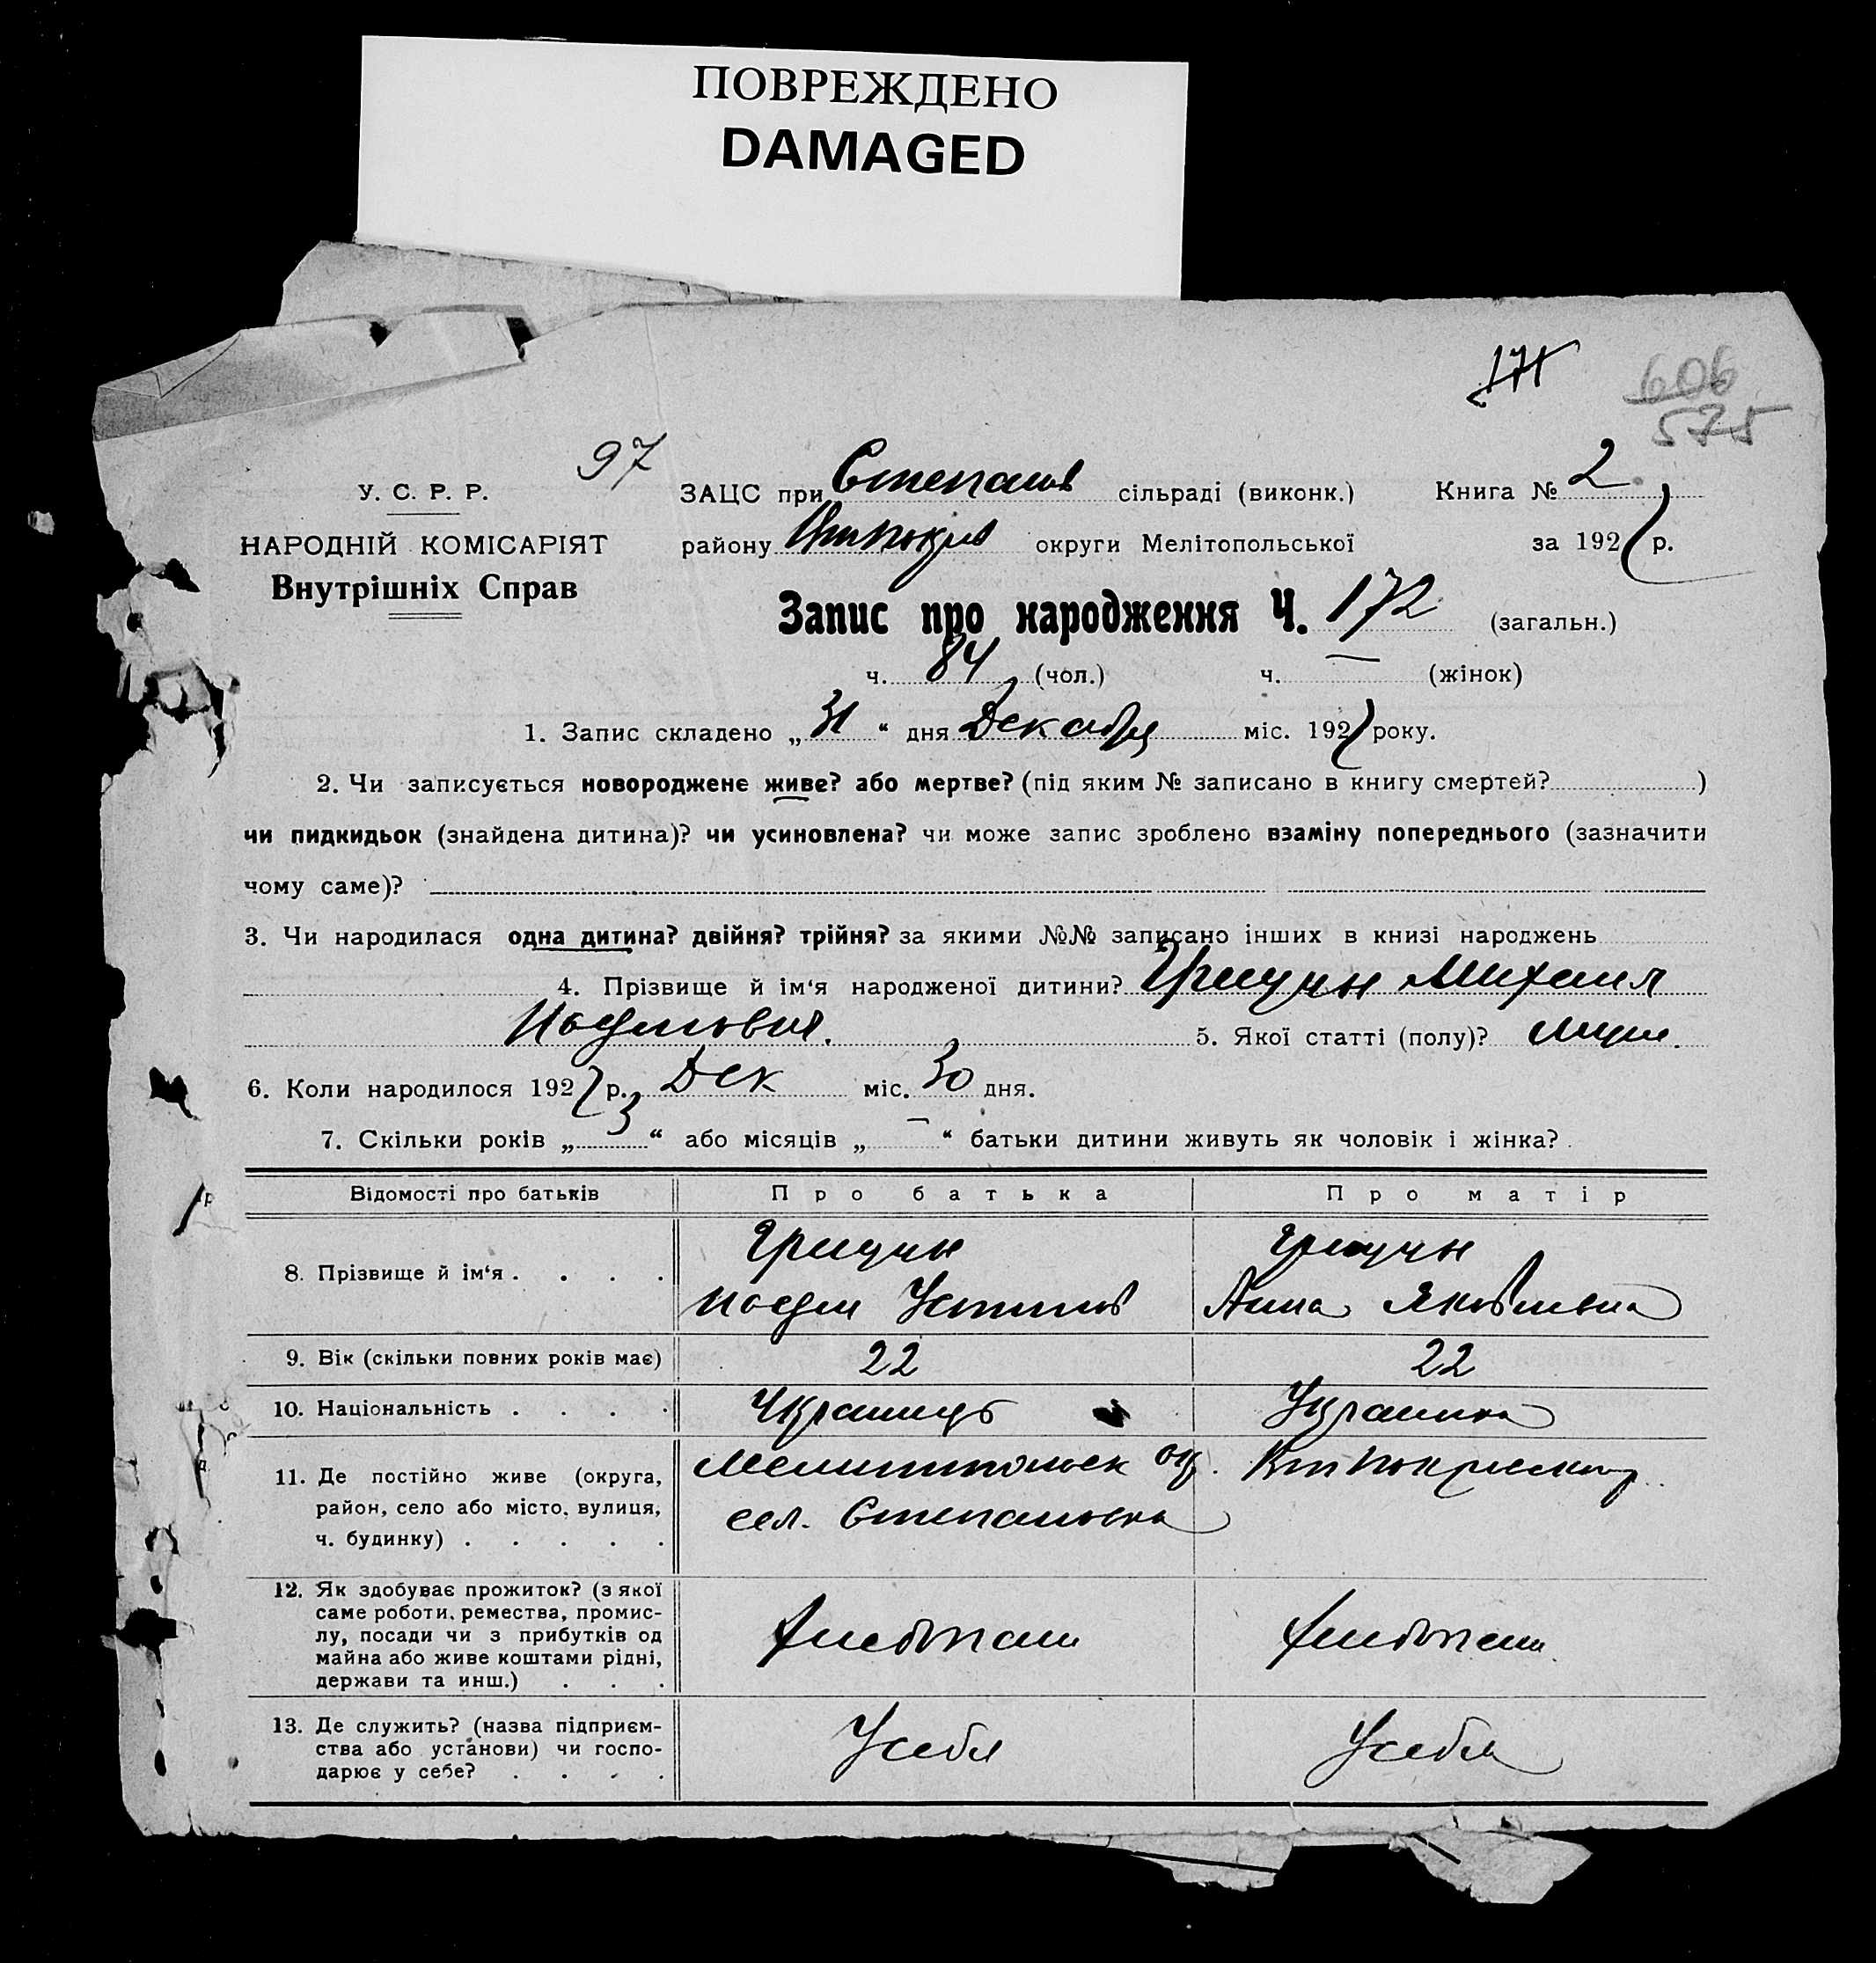 ПОВРЕЖДЕНО
DAMAGED
171
606
575
97
У. С. Р. Р.
НАРОДНІЙ КОМІСАРІЯТ
Внутрішніх Справ
ЗАЦС при Степанів сільраді (виконк.) Книга № 2
району округи Мелітопольської за 1927 р.
Запис про народження Ч. 172 (загальн.)
ч. 84 (чол.) ч. — (жінок)
1. Запис складено „31“ дня Декабря міс. 1927 року.
2. Чи записується новороджене живе? або мертве? (під яким № записано в книгу смертей? )
чи пидкидьок (знайдена дитина)? чи усиновлена? чи може запис зроблено взаміну попереднього (зазначити
чому саме)?
3. Чи народилася одна дитина? двійня? трійня? за якими №№ записано інших в книзі народжень
4. Прізвище й ім‘я народженої дитини? Михаил
5. Якої статті (полу)?
6. Коли народилося 1927 р. Дек міс. 30 дня.
7. Скільки років „3“ або місяців „—“ батьки дитини живуть як чоловік і жінка?
Відомості про батьків Про батька Про матір
8. Прізвище й ім‘я . . . .
Анна Яковлевна
9. Вік (скільки повних років має) 22 22
10. Національність . . . . Украинец Украинка
11. Де постійно живе (округа, район, село або місто, вулиця, ч. будинку) . . . . . Мелитопольск ок.
сел. Степановка
12. Як здобуває прожиток? (з якої
саме роботи, ремества, промис-
лу, посади чи з прибутків од
майна або живе коштами рідні,
держави та инш.) . . . Хлебопаш Хлебопаш
13. Де служить? (назва підприєм-
ства або установи) чи госпо-
дарює у себе? . . . . У себя У себя